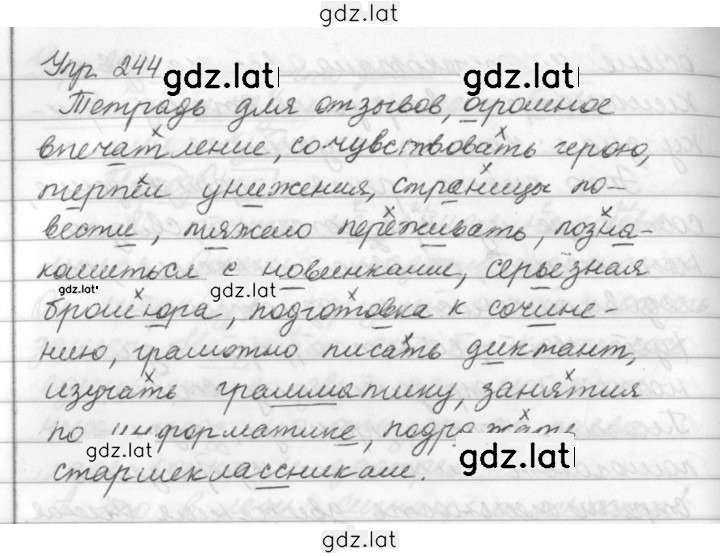 gdz.lat
Упр. 244
gdz.lat gdz.lat
Тетрадь для отзывов, огромное
впечатление, сочувствовать герою,
терпел унижения, страницы по-
вести, тяжело переживать, позна-
комиться с новинками, серьёзная
gdz.lat gdz.lat
брошюра, подготовка к сочине-
нию, грамотно писать диктант,
изучать грамматику, занятия
по информатике, подражать
gdz.lat gdz.lat
старшеклассниками.
gdz.lat